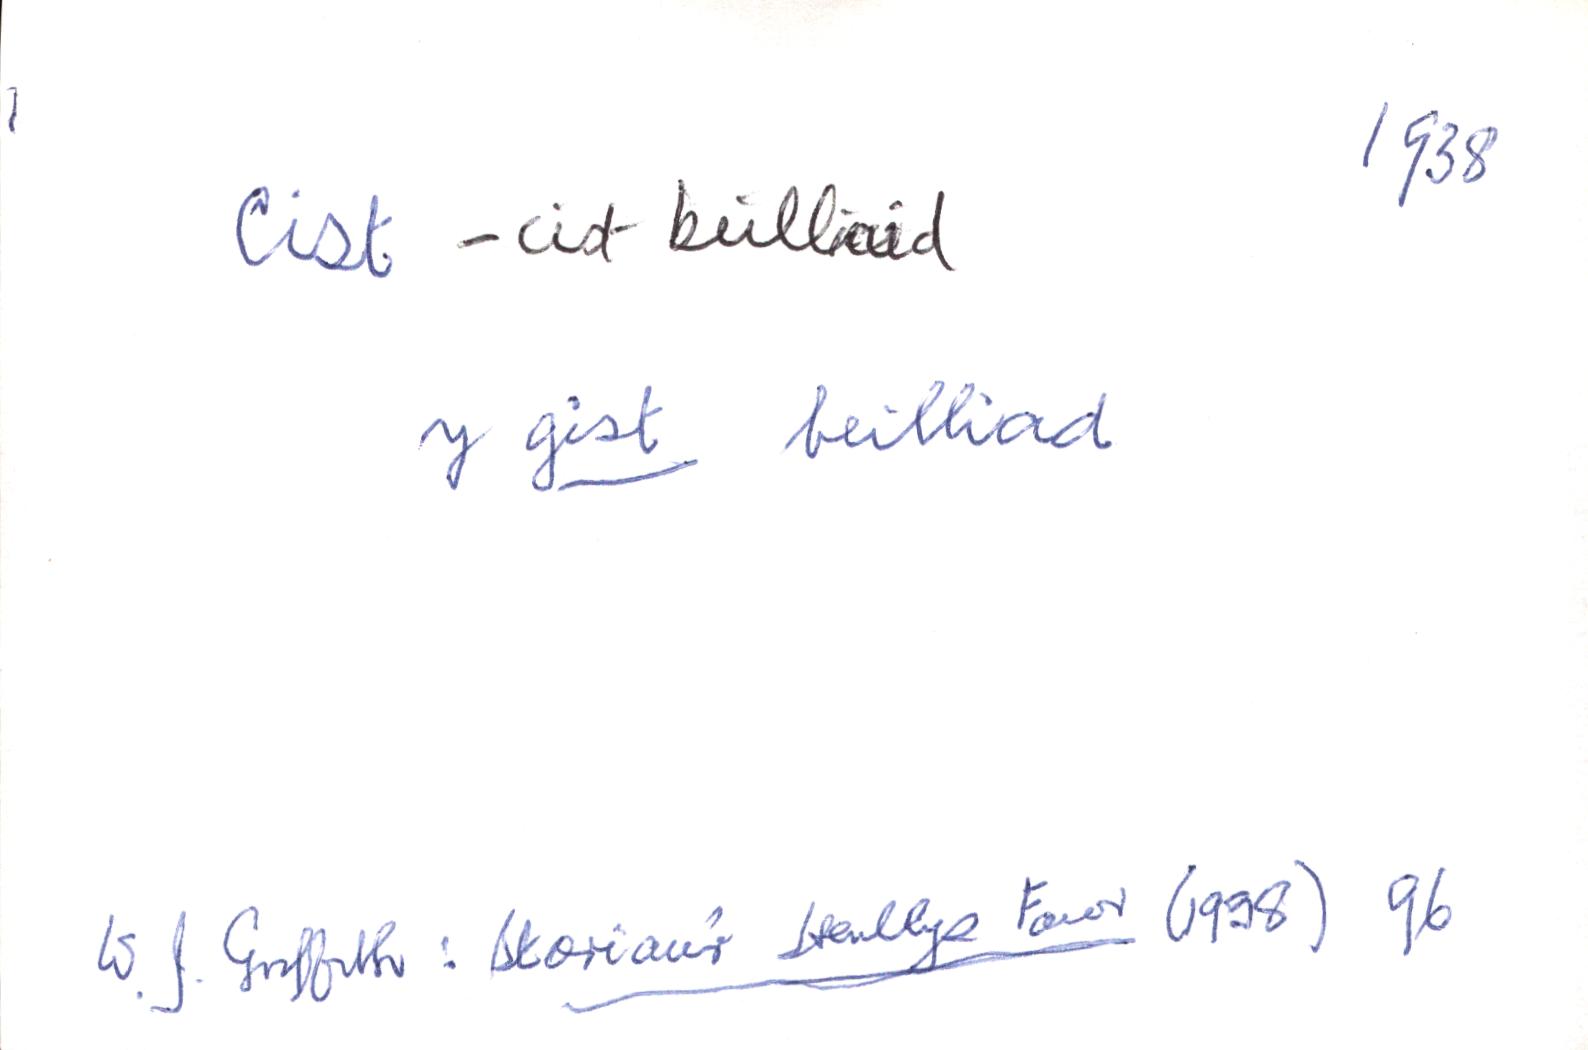 1938
Cist - cist beilliaid
y gist beilliad
W. J. Griffith : Storïau'r Henllys Fawr (1938) 96